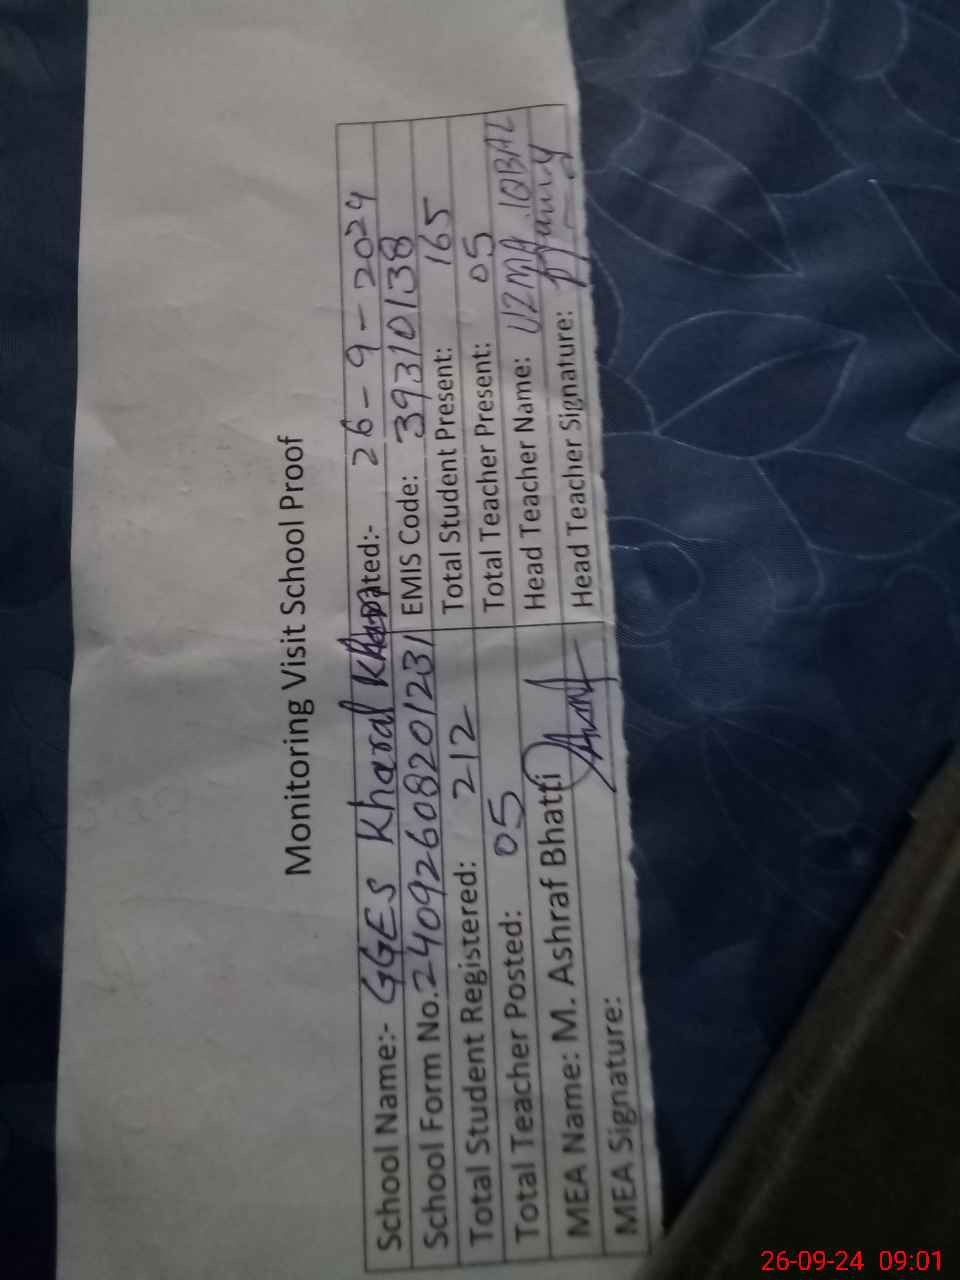 Monitoring Visit School Proof
School Name:- GGES Kharal Dated:- 26-9-2024
School Form No. 24092608201231 EMIS Code: 39310138
Total Student Registered: 212 Total Student Present: 165
Total Teacher Posted: 05 Total Teacher Present: 05
MEA Name: M. Ashraf Bhatti Head Teacher Name: UZMA IQBAL
MEA Signature: Head Teacher Signature:
26-09-24 09:01